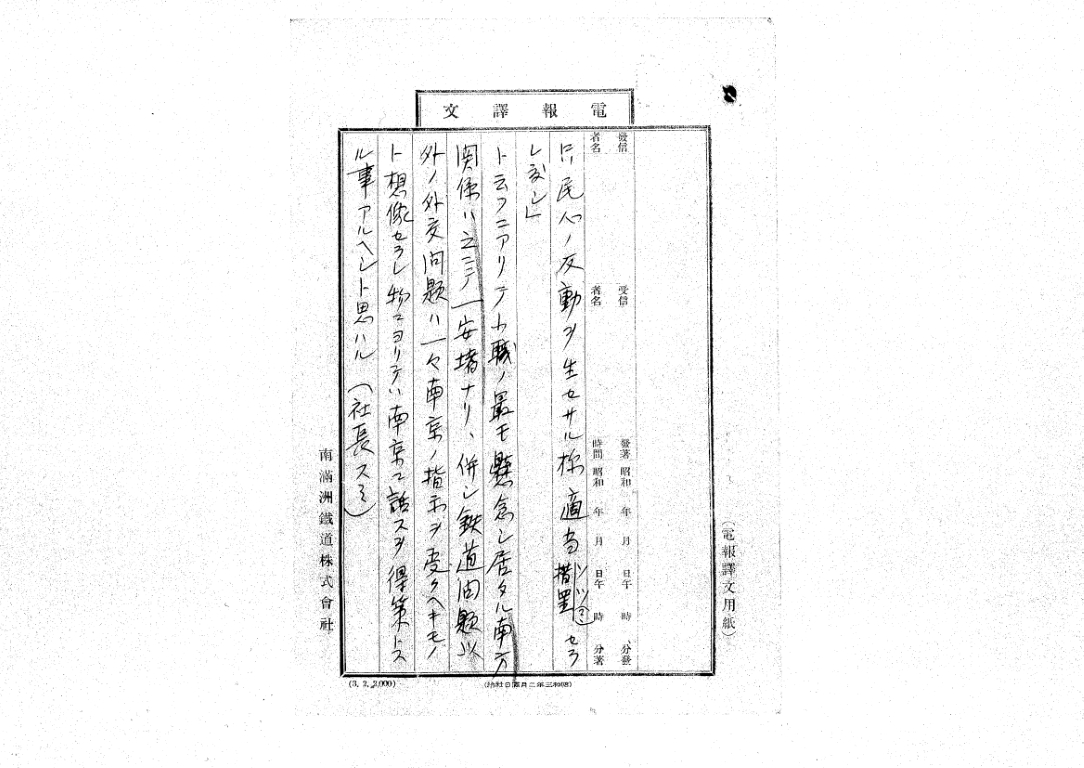 電報譯文
發信者名 受信者名 發著時間 昭和 年 月 日午 時 分發
昭和 年 月 日午 時 分著
ハ民心ノ反動ヲ生セサル様適当措置セラ
レ度シ」
ト云フニアリテ小職ノ最モ懸念シ居タル南方
関係ハ之ニテ一安堵ナリ、併シ鉄道問題以
外ノ外交問題ハ一々南京ノ指示ヲ受クヘキモノ
ト想像セラレ物ニヨリテハ南京ニ話スヲ得策トス
ル事アルヘシト思ハル (社長スミ)
南滿洲鐵道株式會社
(電報譯文用紙)
(3. 2. 2,000)